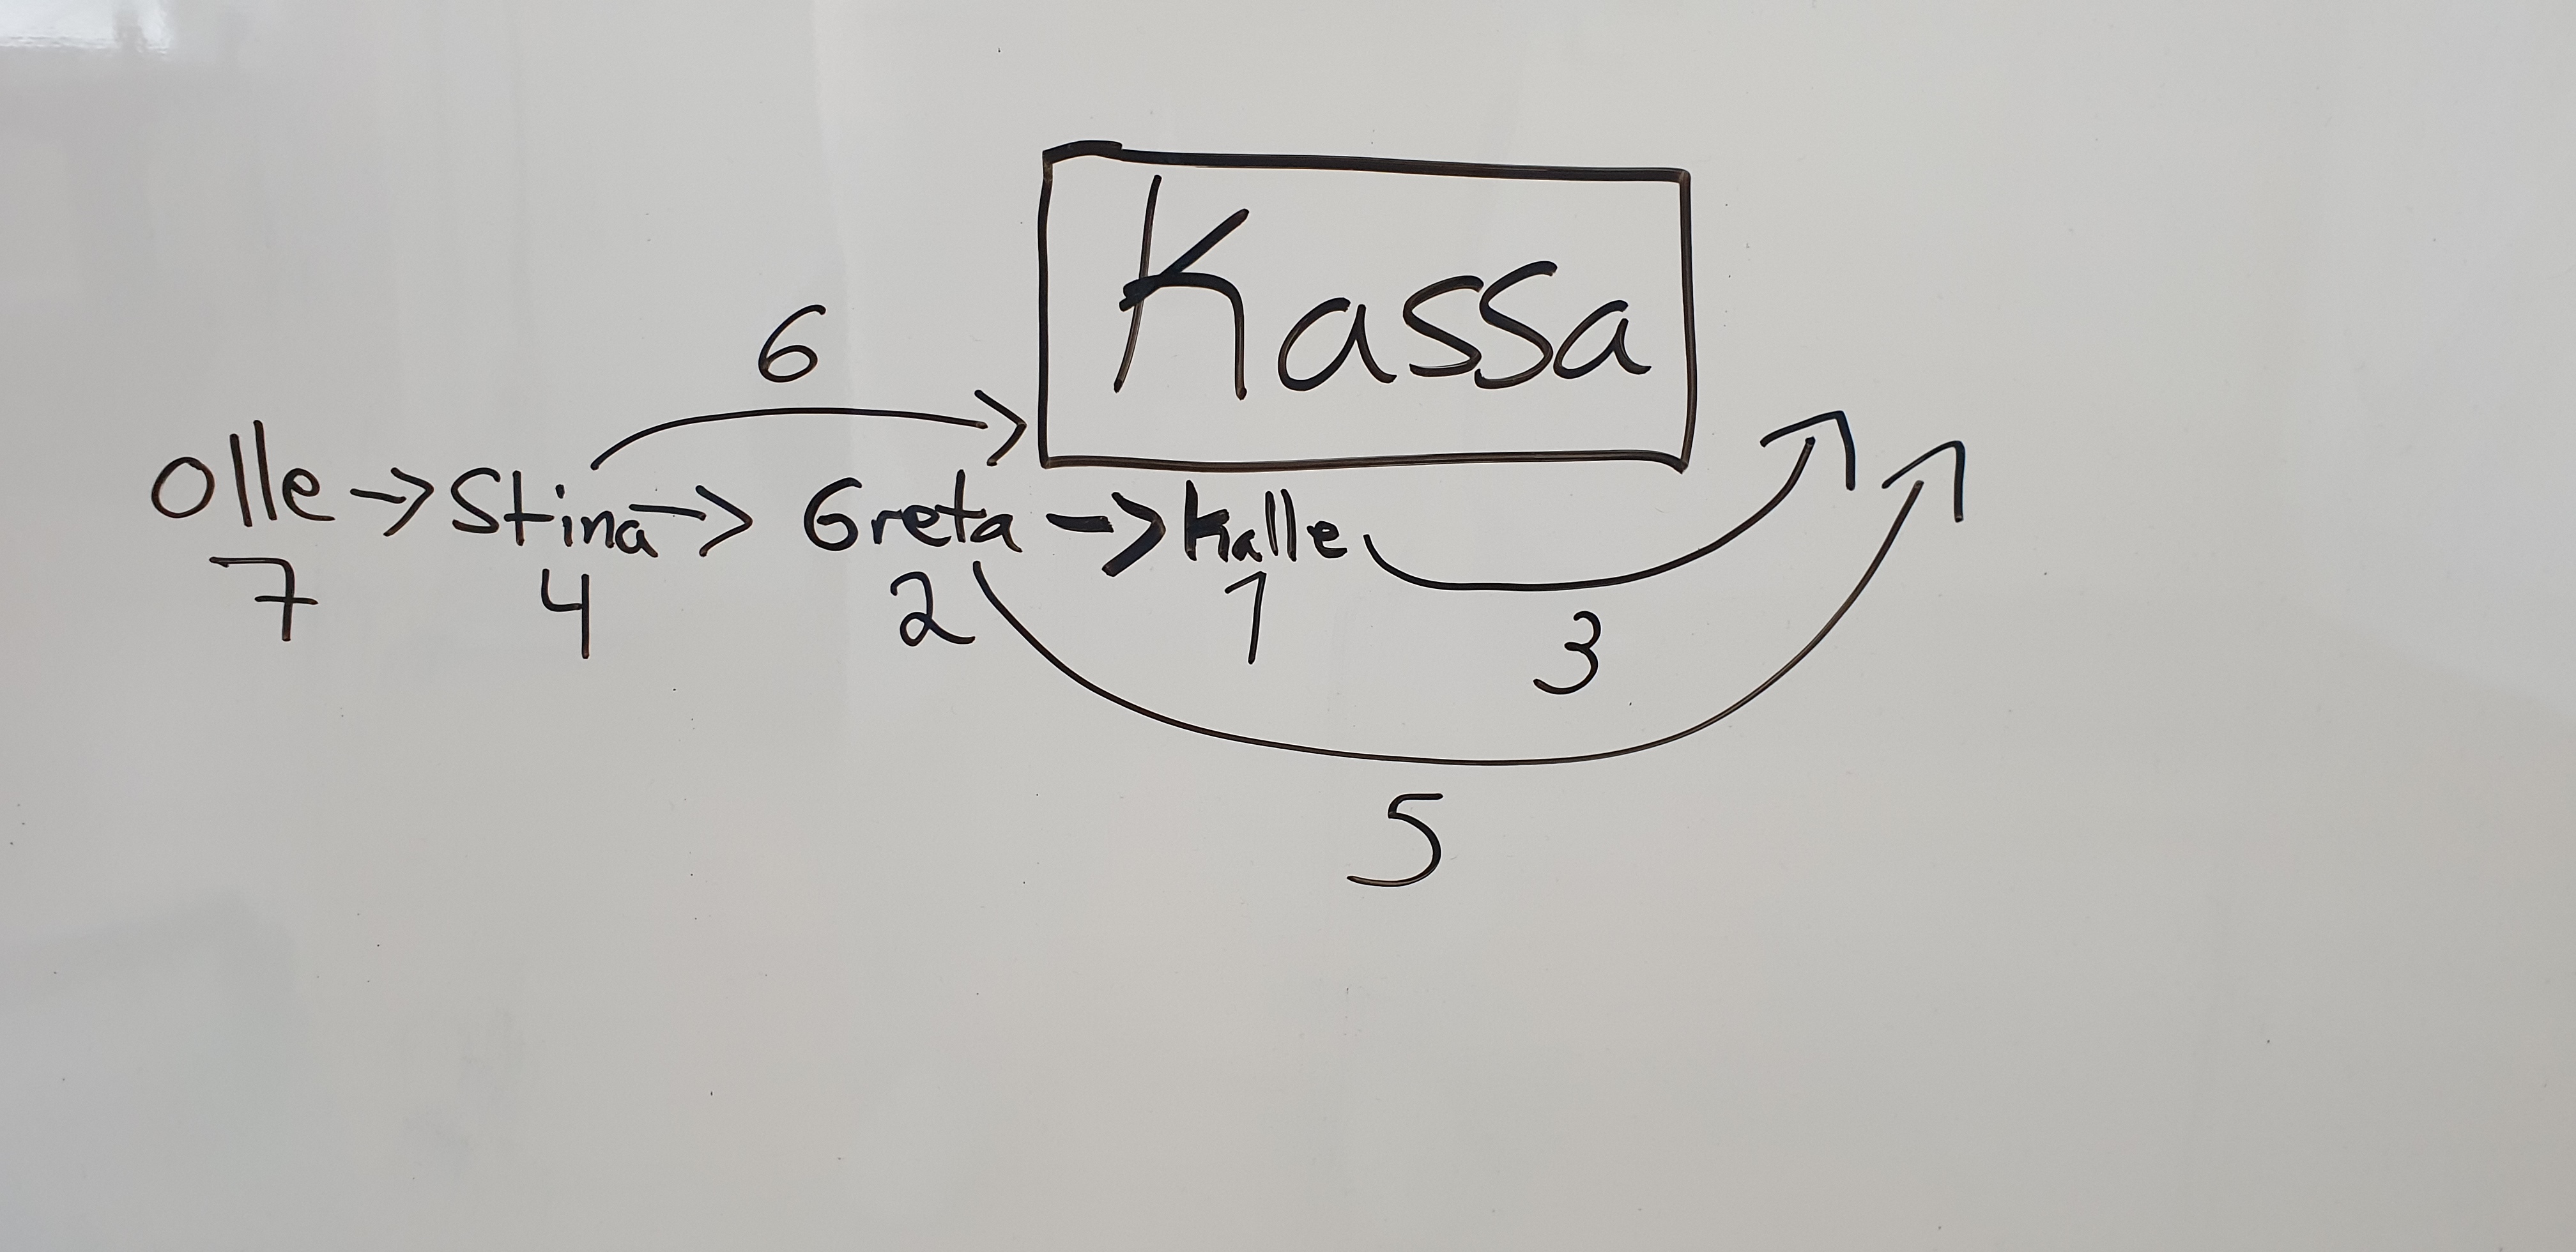 Kassa
6
Olle -> Stina -> Greta -> Kalle
7 4 2 1
3
5